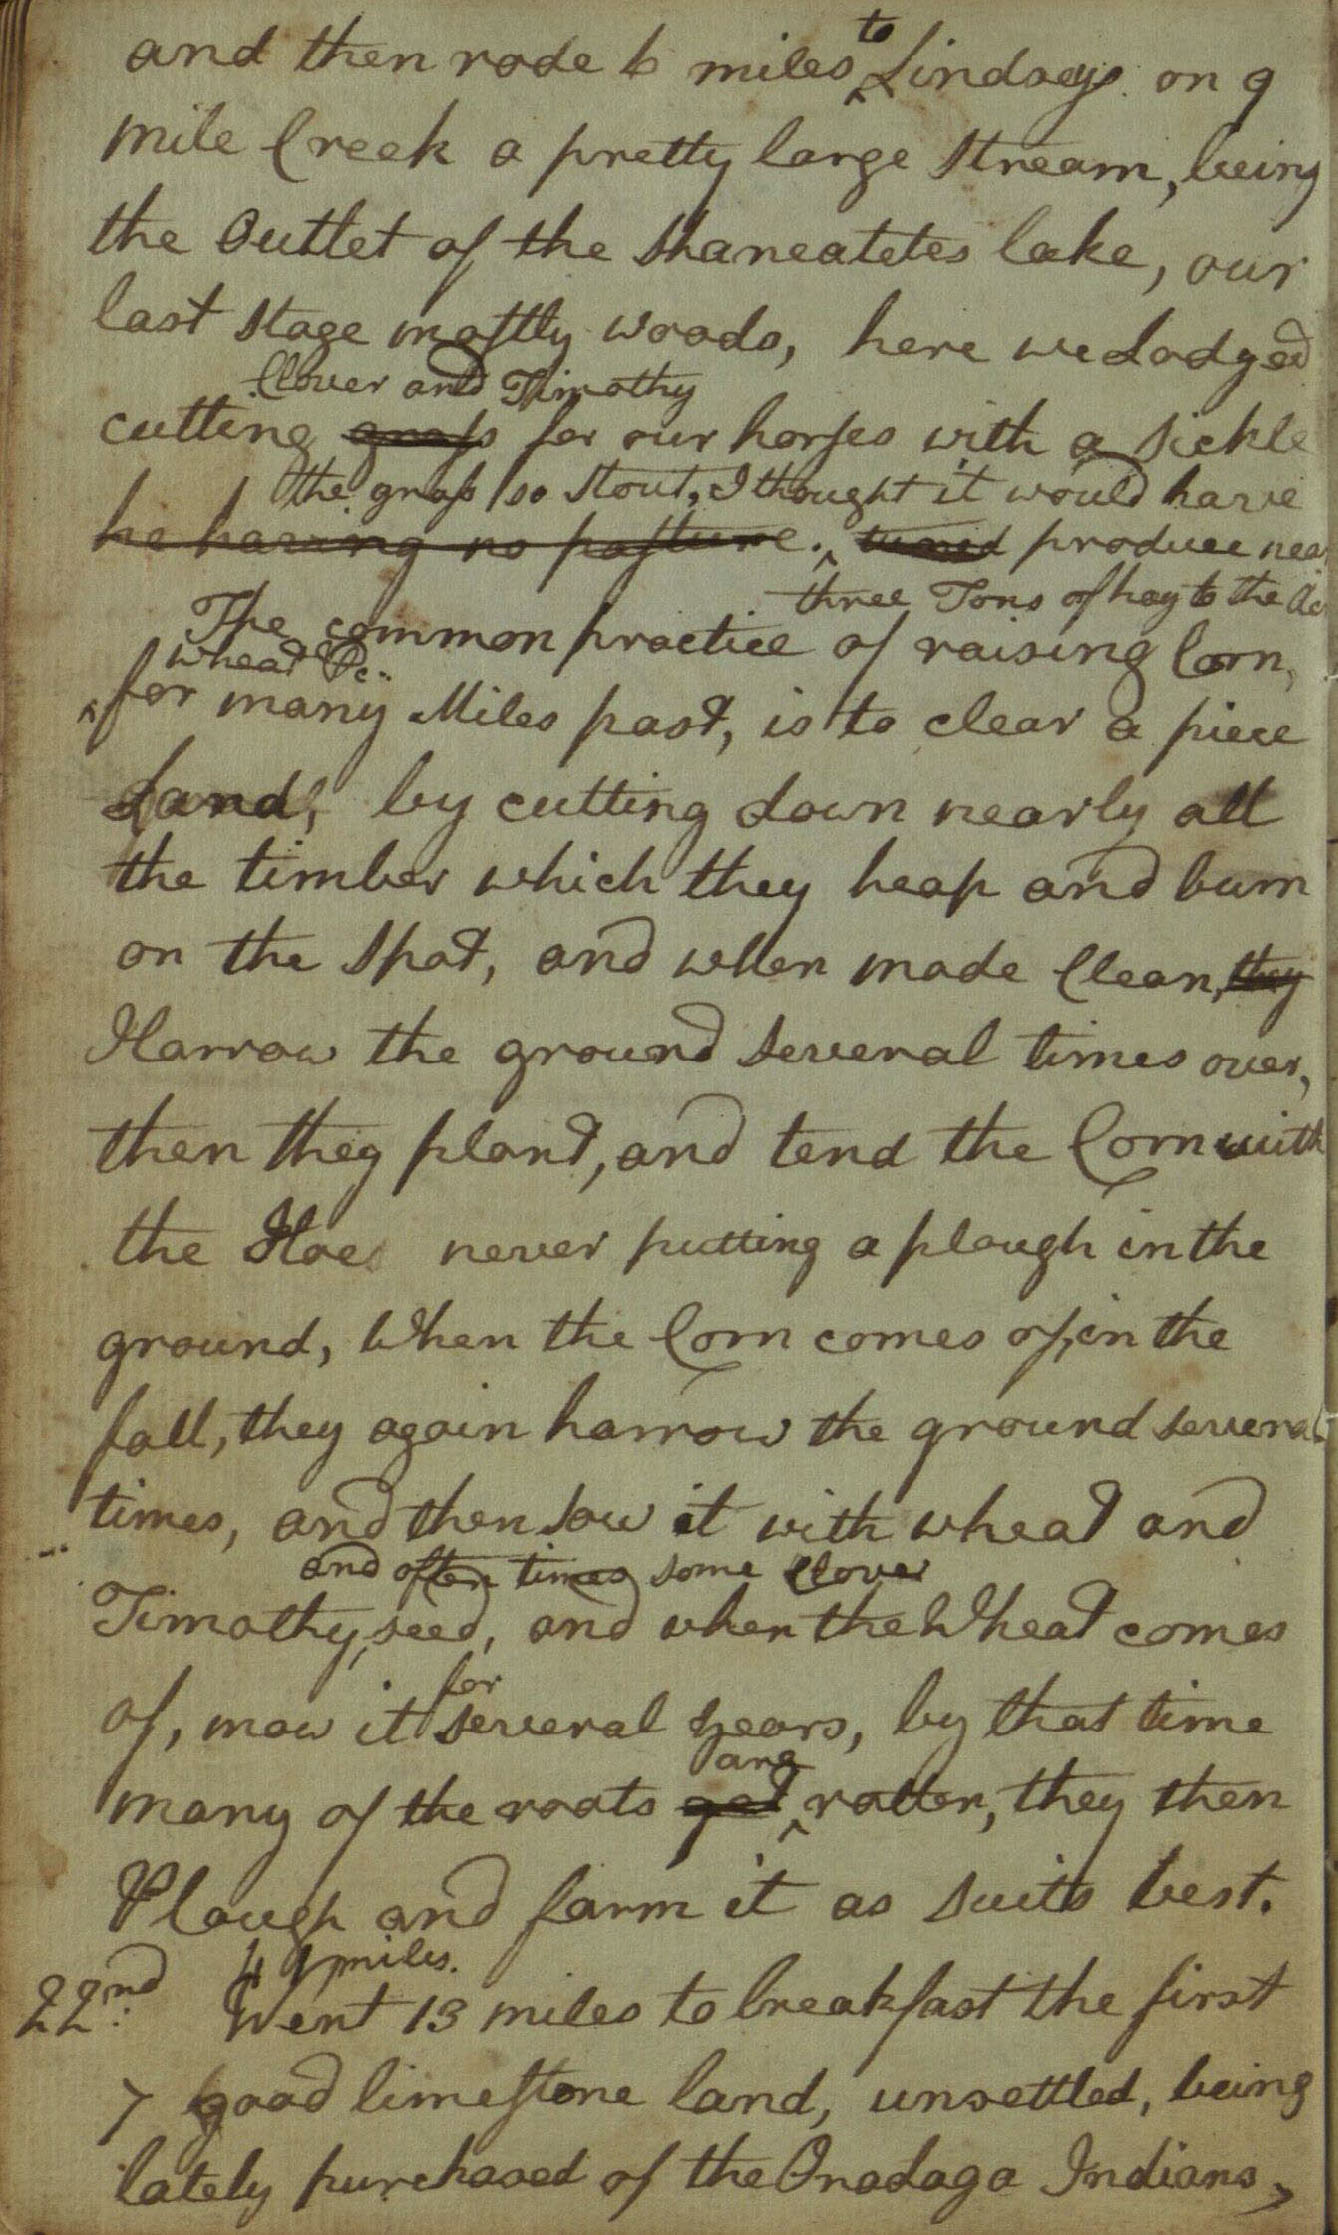 and then rode 6 miles to Lindseys on 9
mile Creek a pretty large Stream, being
the Outlet of the Skaneatetes lake, our
last Stage mostly woods, here we Lodged
Clover and Timothy
cutting grass for our horses with a Sickle
the grass so Stout, I thought it would have
he having no pasture. produce near
three Tons of hay to the
The common practice of raising Corn,
wheat &c..
for many Miles past, is to clear a piece
Land, by cutting down nearly all
the timber which they heap and burn
on the Spot, and when made Clean, they
Harrow the ground several times over,
then they plant, and tend the Corn with
the Hoe never putting a plough in the
ground, When the Corn comes of, in the
fall, they again harrow the ground several
times, and then sow it with wheat and
and often times some Clover
Timothy, seed, and when the Wheat comes
for
of, mow it several years, by that time
are
many of the roots get rotten, they then
Plough and farm it as suits best.
miles.
22nd. Went 13 miles to breakfast the first
7 good limestone land, unsettled, being
lately purchased of the Onadaga Indians,